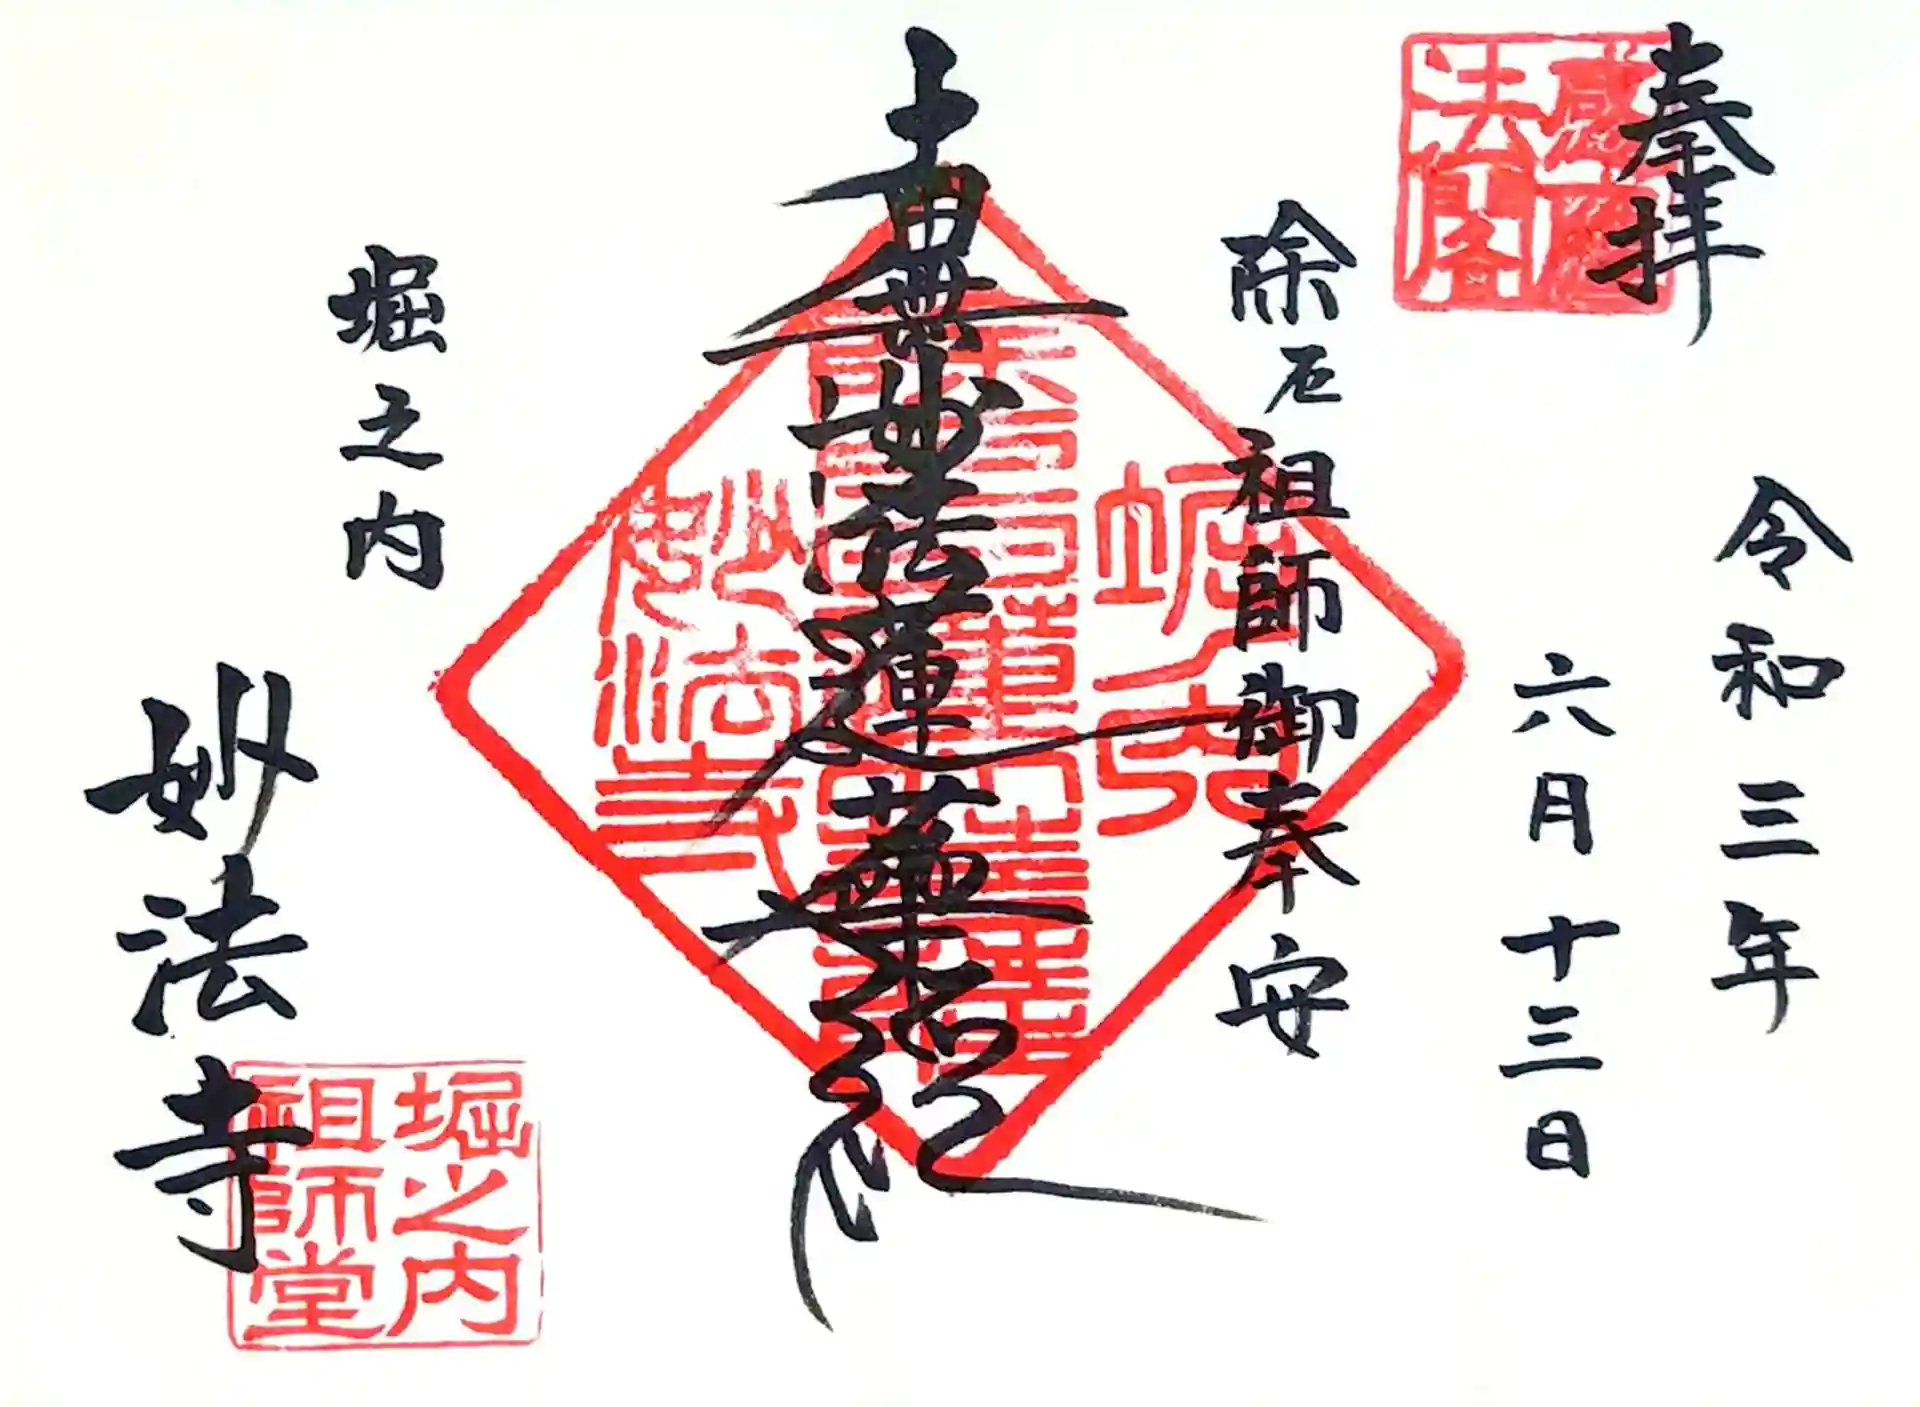 奉拝
令和三年
六月十三日
除厄祖師御奉安
南無妙法蓮華経
堀之内
妙法寺
堀之内
祖師堂
堀之内
妙法寺
法閣